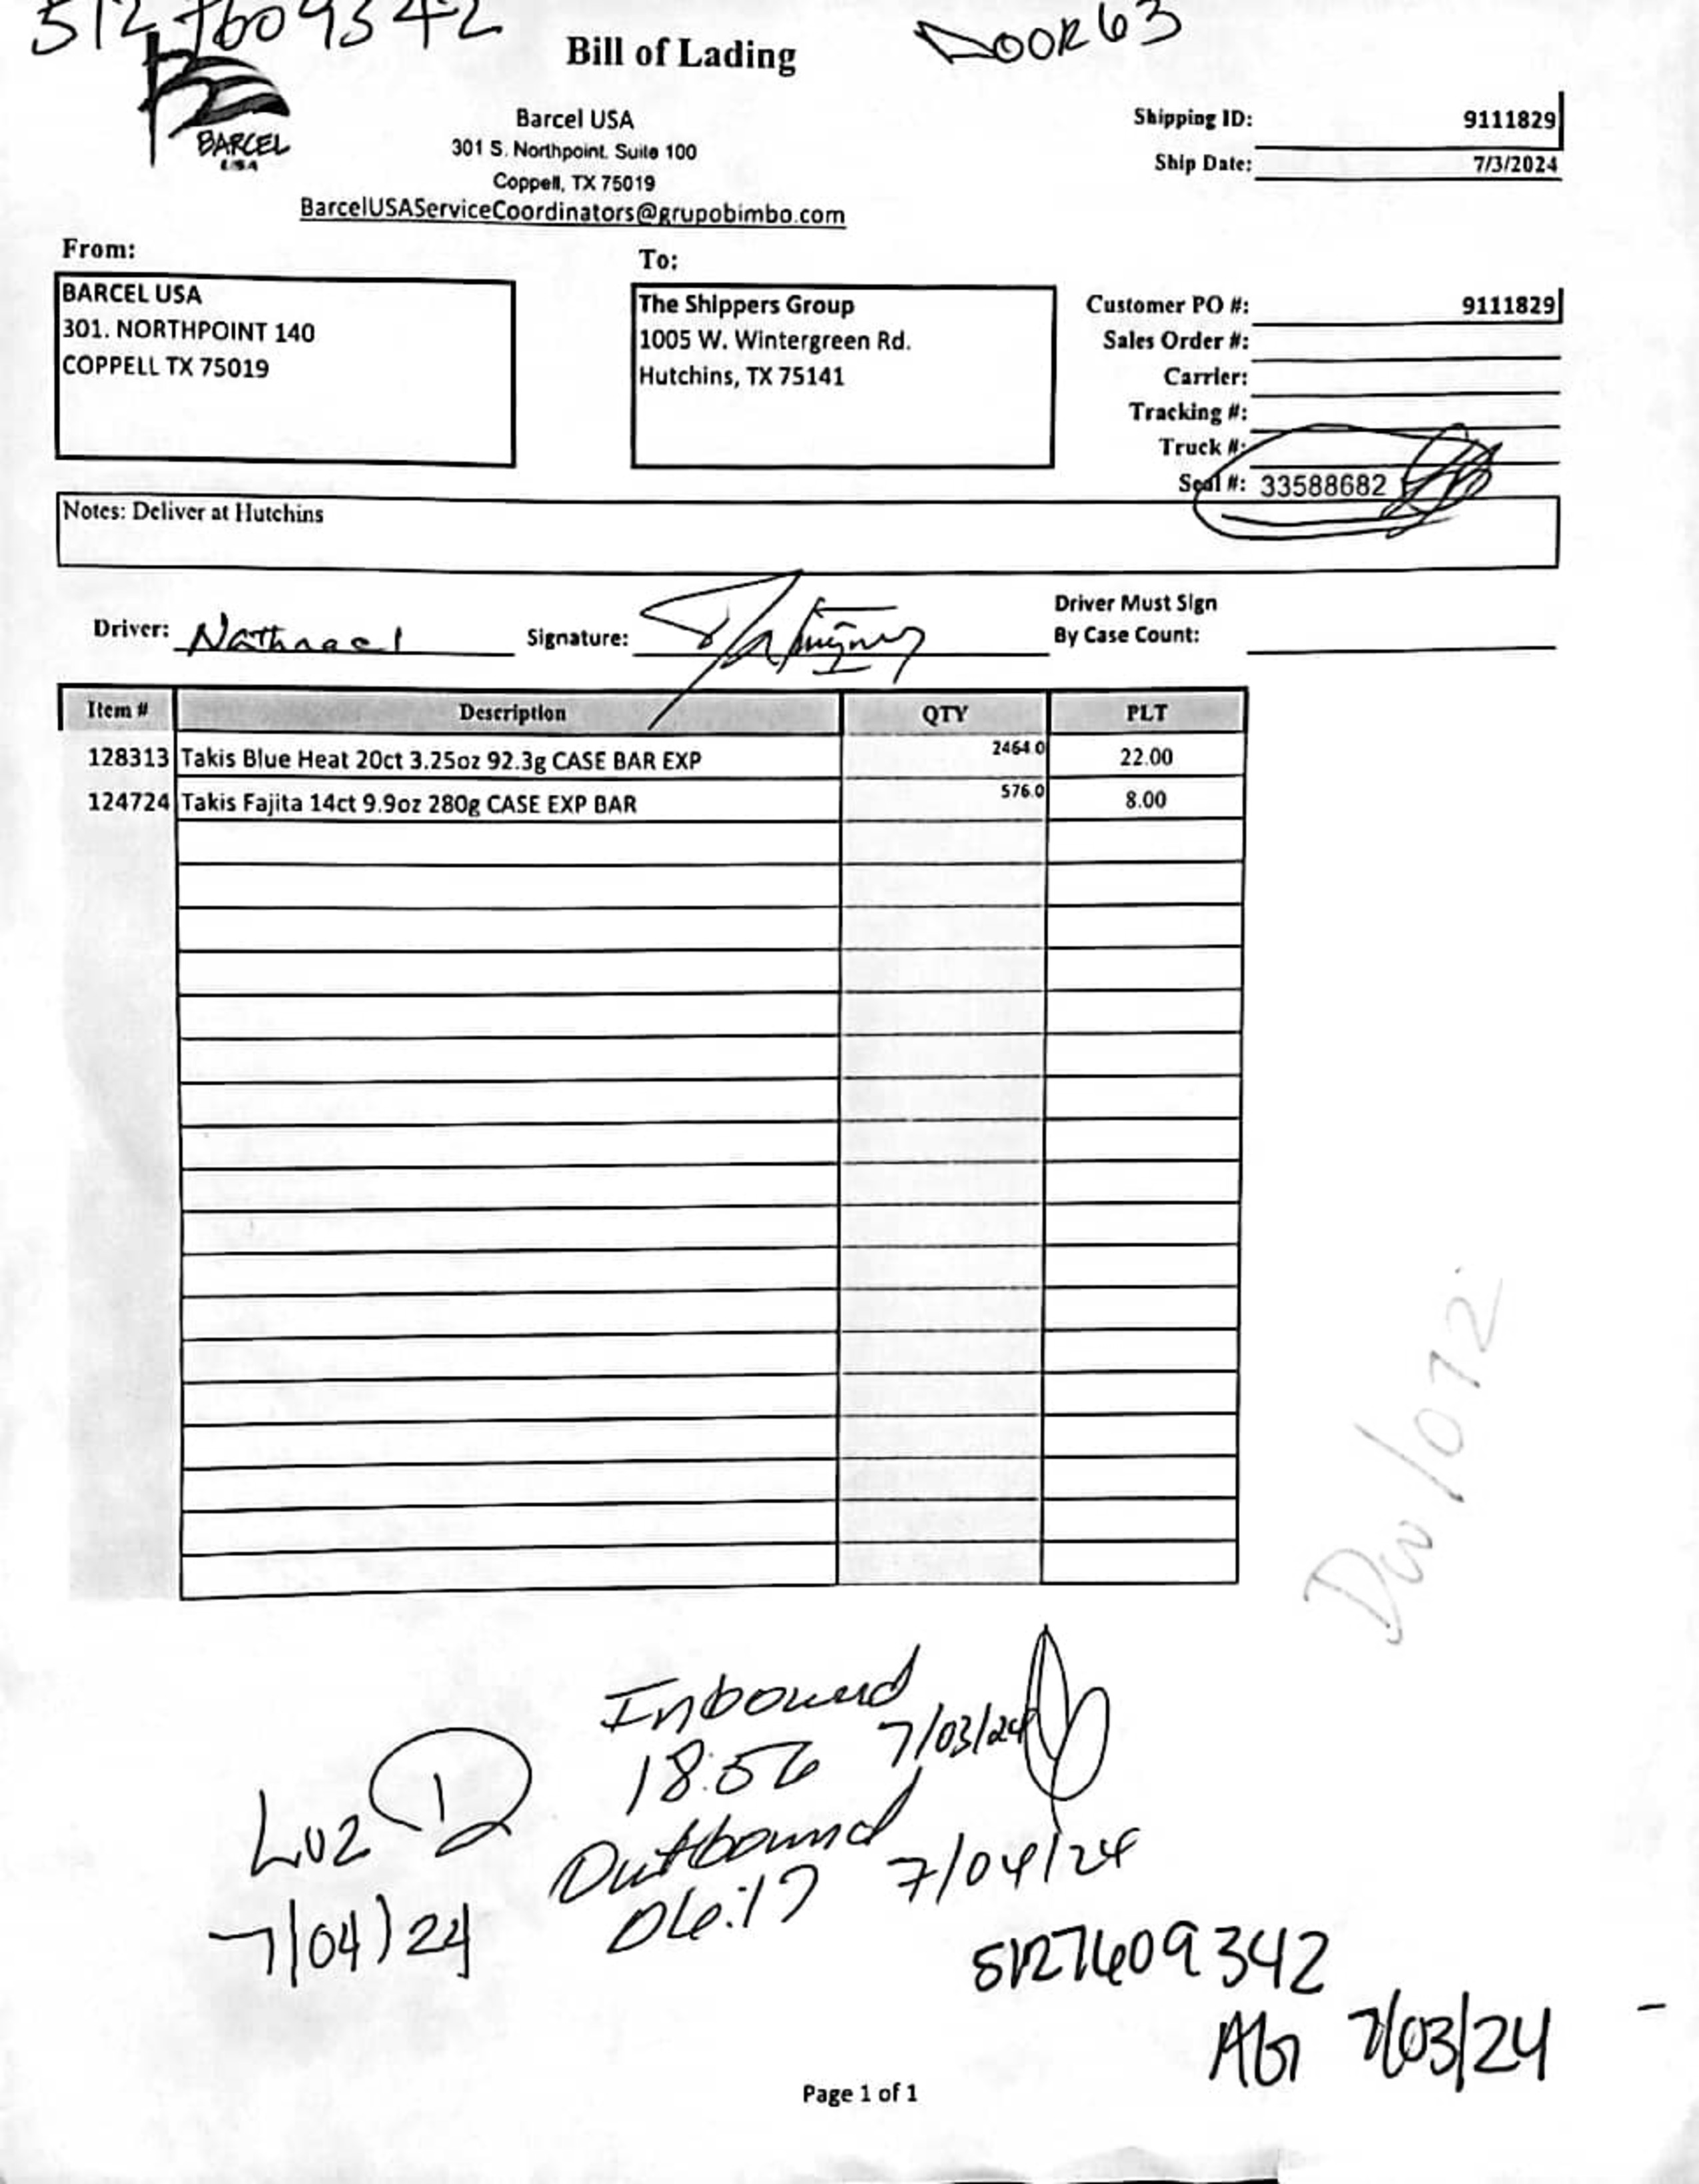 5127609342
DOOR 63
Bill of Lading
BARCEL
USA
Barcel USA
301 S. Northpoint. Suite 100
Coppell, TX 75019
BarcelUSAServiceCoordinators@grupobimbo.com
Shipping ID: 9111829
Ship Date: 7/3/2024
From:
BARCEL USA
301. NORTHPOINT 140
COPPELL TX 75019
To:
The Shippers Group
1005 W. Wintergreen Rd.
Hutchins, TX 75141
Customer PO #: 9111829
Sales Order #:
Carrier:
Tracking #:
Truck #:
Seal #: 33588682
Notes: Deliver at Hutchins
Driver: Nathnael
Signature:
Driver Must Sign
By Case Count:
Item # Description QTY PLT
128313 Takis Blue Heat 20ct 3.25oz 92.3g CASE BAR EXP 2464.0 22.00
124724 Takis Fajita 14ct 9.9oz 280g CASE EXP BAR 576.0 8.00
Inbound
18:56 7/03/24
Outbound
06:17 7/04/24
Luz
7/04/24
5127609342
7/03/24
Page 1 of 1